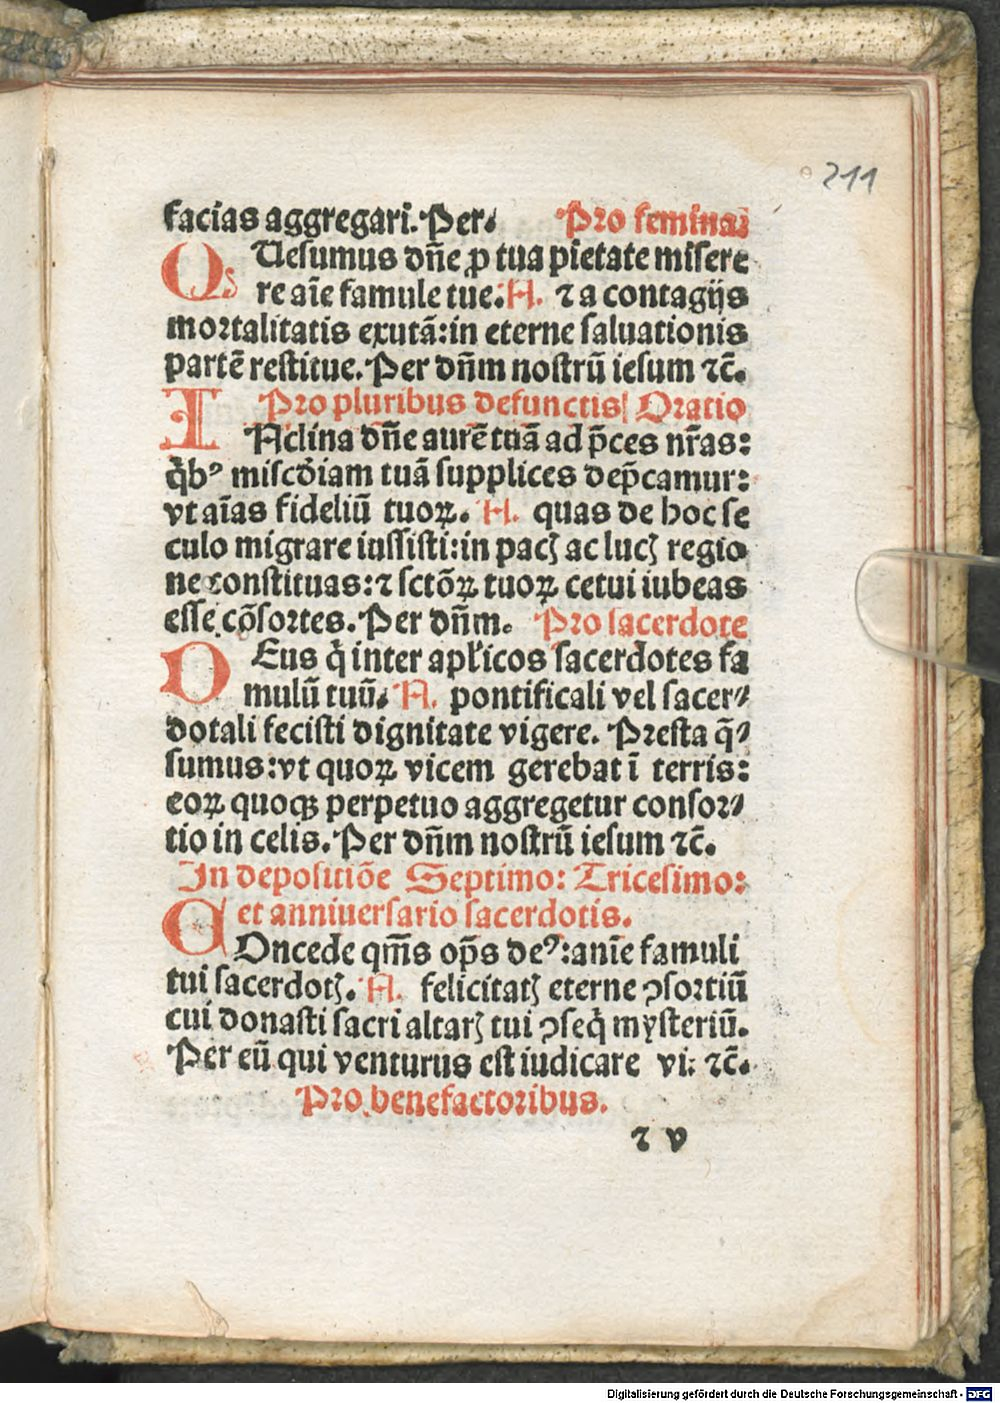 211
facias aggregari. Per. Pro femina:
QUesumus dñe ꝓ tua pietate misere
re aīe famule tue. A. ⁊ a contagijs
mortalitatis exutā: in eterne saluationis
partē restitue. Per dn̄m nostrū iesum ⁊c̄.
Pro pluribus defunctis Oratio
INclina dn̄e aurē tuā ad p̄ces nr̄as:
q̇bꝰ misc̄diam tuā supplices dep̄camur:
vt aīas fideliū tuoꝝ. A. quas de hoc se
culo migrare iussisti: in pacꝭ ac lucꝭ regio
ne constituas: ⁊ sctōꝝ tuoꝝ cetui iubeas
esse cōsortes. Per dn̄m. Pro sacerdote
DEus q̇ inter apl'icos sacerdotes fa
mulū tuū. A. pontificali vel sacer⸗
dotali fecisti dignitate vigere. Presta q̄⸗
sumus: vt quoꝝ vicem gerebat ī terris:
eoꝝ quoqꝫ perpetuo aggregetur consor⸗
tio in celis. Per dn̄m nostrū iesum ⁊c̄.
In depositiōe Septimo: Tricesimo:
et anniuersario sacerdotis.
COncede qm̄s op̄s deꝰ: anīe famuli
tui sacerdotꝭ. A. felicitatꝭ eterne ꝯsortiū
cui donasti sacri altarꝭ tui ꝯseq̇ mysteriū.
Per eū qui venturus est iudicare vi: ⁊c̄.
Pro benefactoribus.
⁊ v
Digitalisierung gefördert durch die Deutsche Forschungsgemeinschaft - DFG